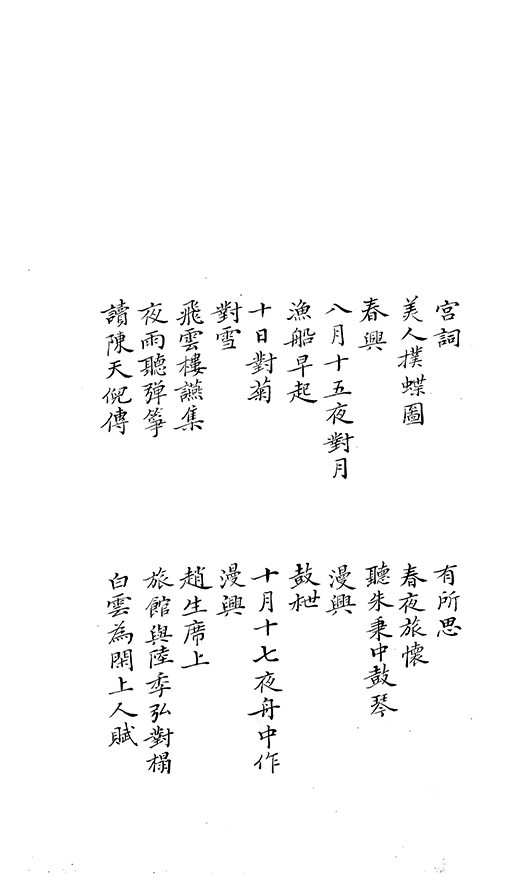 宮詞
有所思
美人撲蝶圖
春夜旅懷
春興
聽朱秉中鼓琴
八月十五夜對月
漫興
漁船早起
鼓枻
十日對菊
十月十七夜舟中作
對雪
漫興
飛雲樓讌集
趙生席上
夜雨聽彈箏
旅館與陸季弘對榻
讀陳天倪傳
白雲為閑上人賦